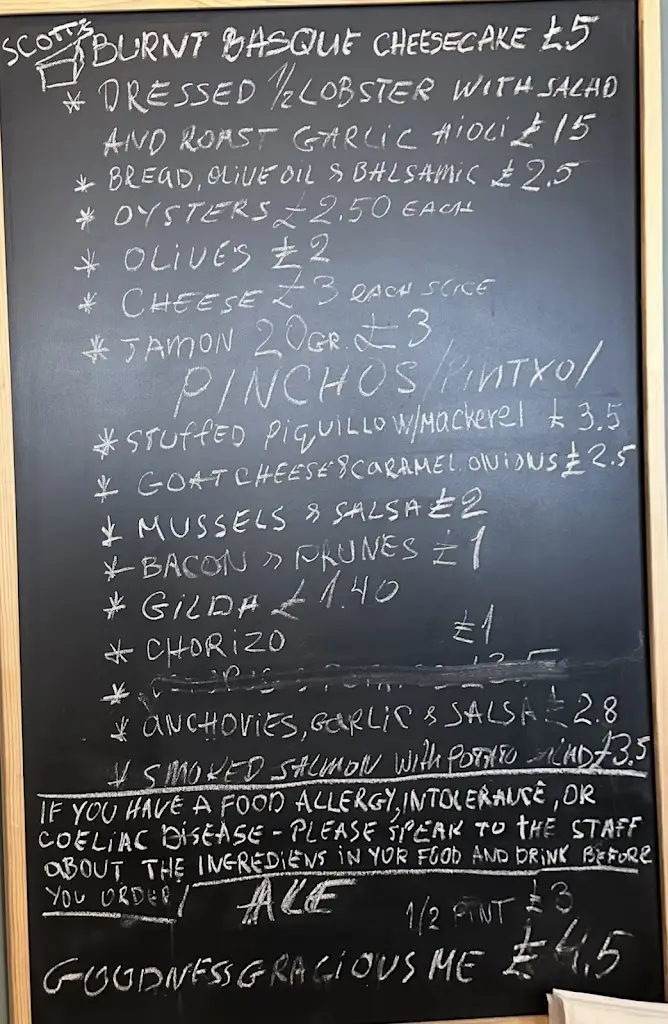 SCOTT'S BURNT BASQUE CHEESECAKE £5
* DRESSED 1/2 LOBSTER WITH SALAD
AND ROAST GARLIC AIOLI £15
* BREAD, OLIVE OIL & BALSAMIC £2.5
* OYSTERS £2.50 EACH
* OLIVES £2
* CHEESE £3 EACH SLICE
* JAMON 20GR. £3
PINCHOS/PINTXO/
* STUFFED PIQUILLO W/MACKEREL £3.5
* GOAT CHEESE & CARAMEL. ONIONS £2.5
* MUSSELS & SALSA £2
* BACON » PRUNES £1
* GILDA £1.40
* CHORIZO £1
*
* ANCHOVIES, GARLIC & SALSA £2.8
* SMOKED SALMON WITH POTATO £3.5
IF YOU HAVE A FOOD ALLERGY, INTOLERANCE, OR
COELIAC DISEASE - PLEASE SPEAK TO THE STAFF
ABOUT THE INGREDIENS IN YOR FOOD AND DRINK BEFORE
YOU ORDER/
ALE
1/2 PINT £3
GOODNESS GRACIOUS ME £4.5